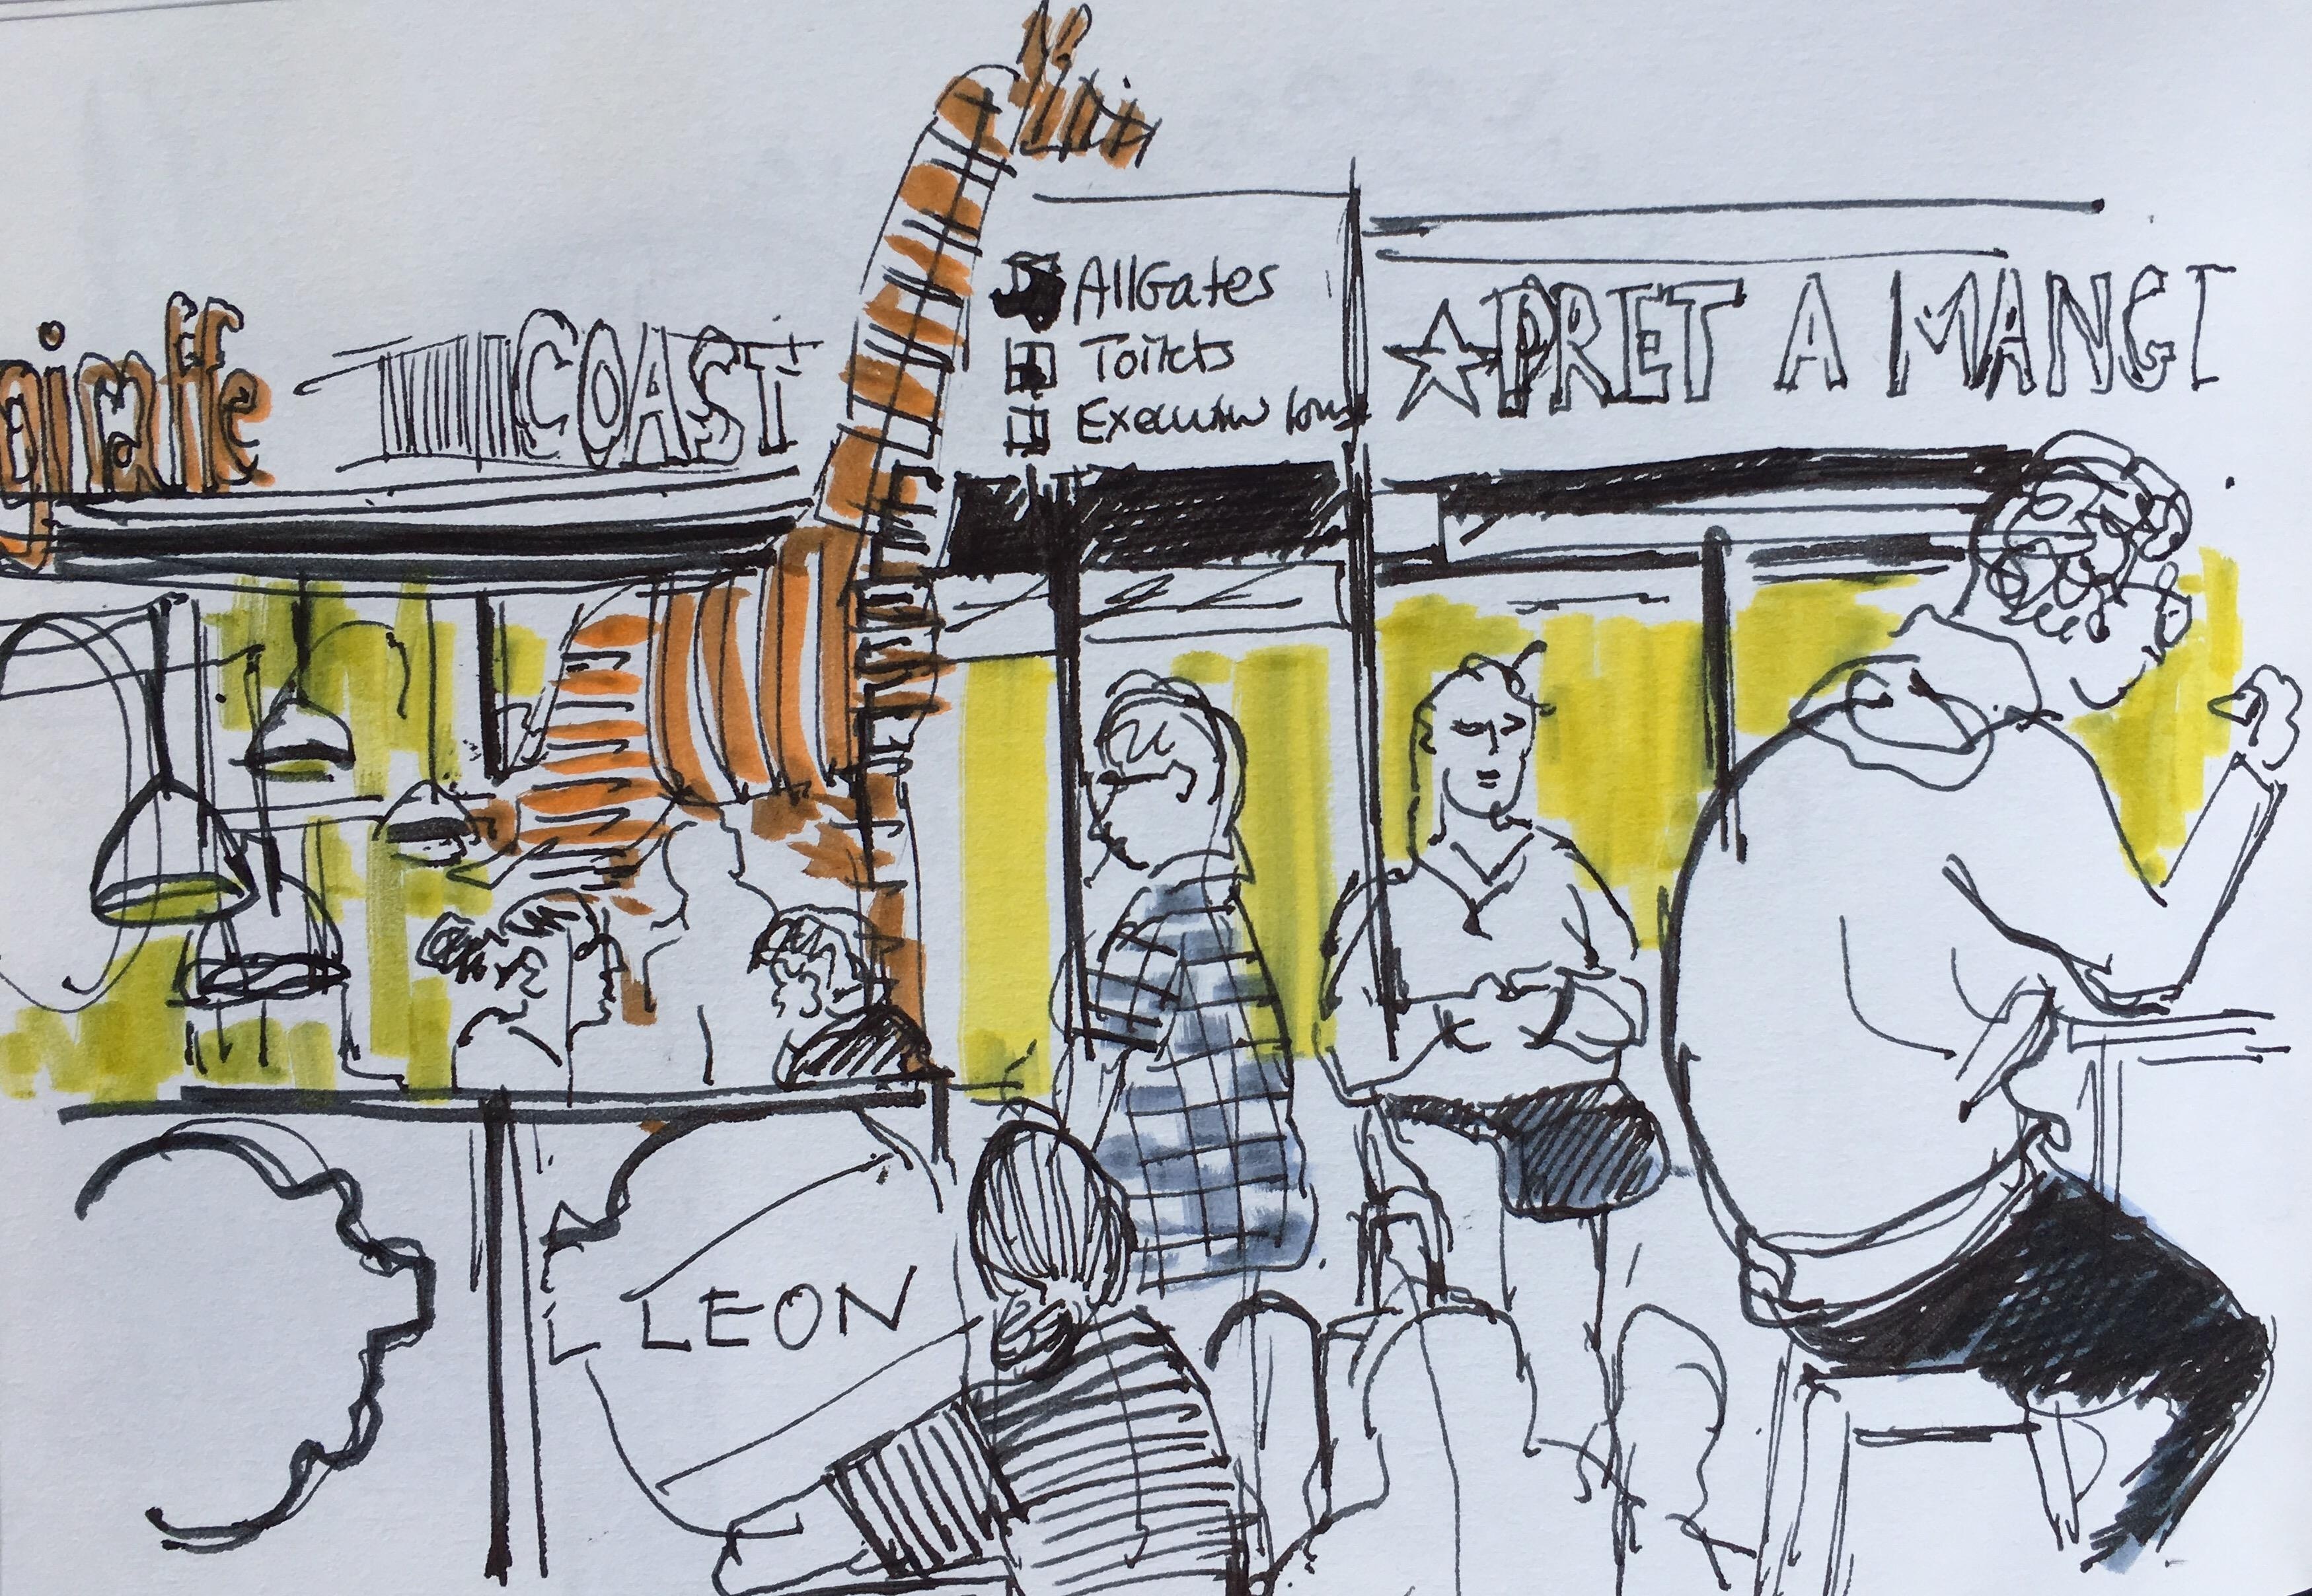 giraffe
COAST
AllGates
Toilets
Executive
PRET A MANG
LEON